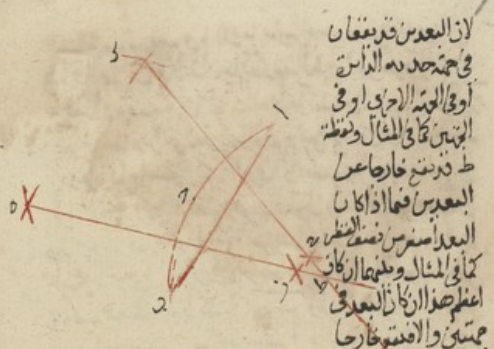 لان البعدين قد يقعان
فى جهة حدبه الدائرة
او فى الجهة الاخرى او فى
الجهتين كما فى المثال ونقطة
ط قد تقع خارجا عن
البعدين فيما اذا كان
البعد اصغر من نصف القطر
كما فى المثال وبينهما ان كان
اعظم هذا ان كان البعد فى
جهتين والا فتقع خارجا
ا
ه
ز
ح
ط